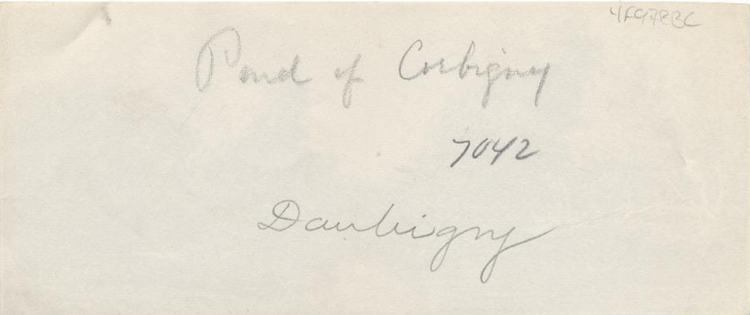 4F97BBC
Pond of Corbigny
7042
Daubigny